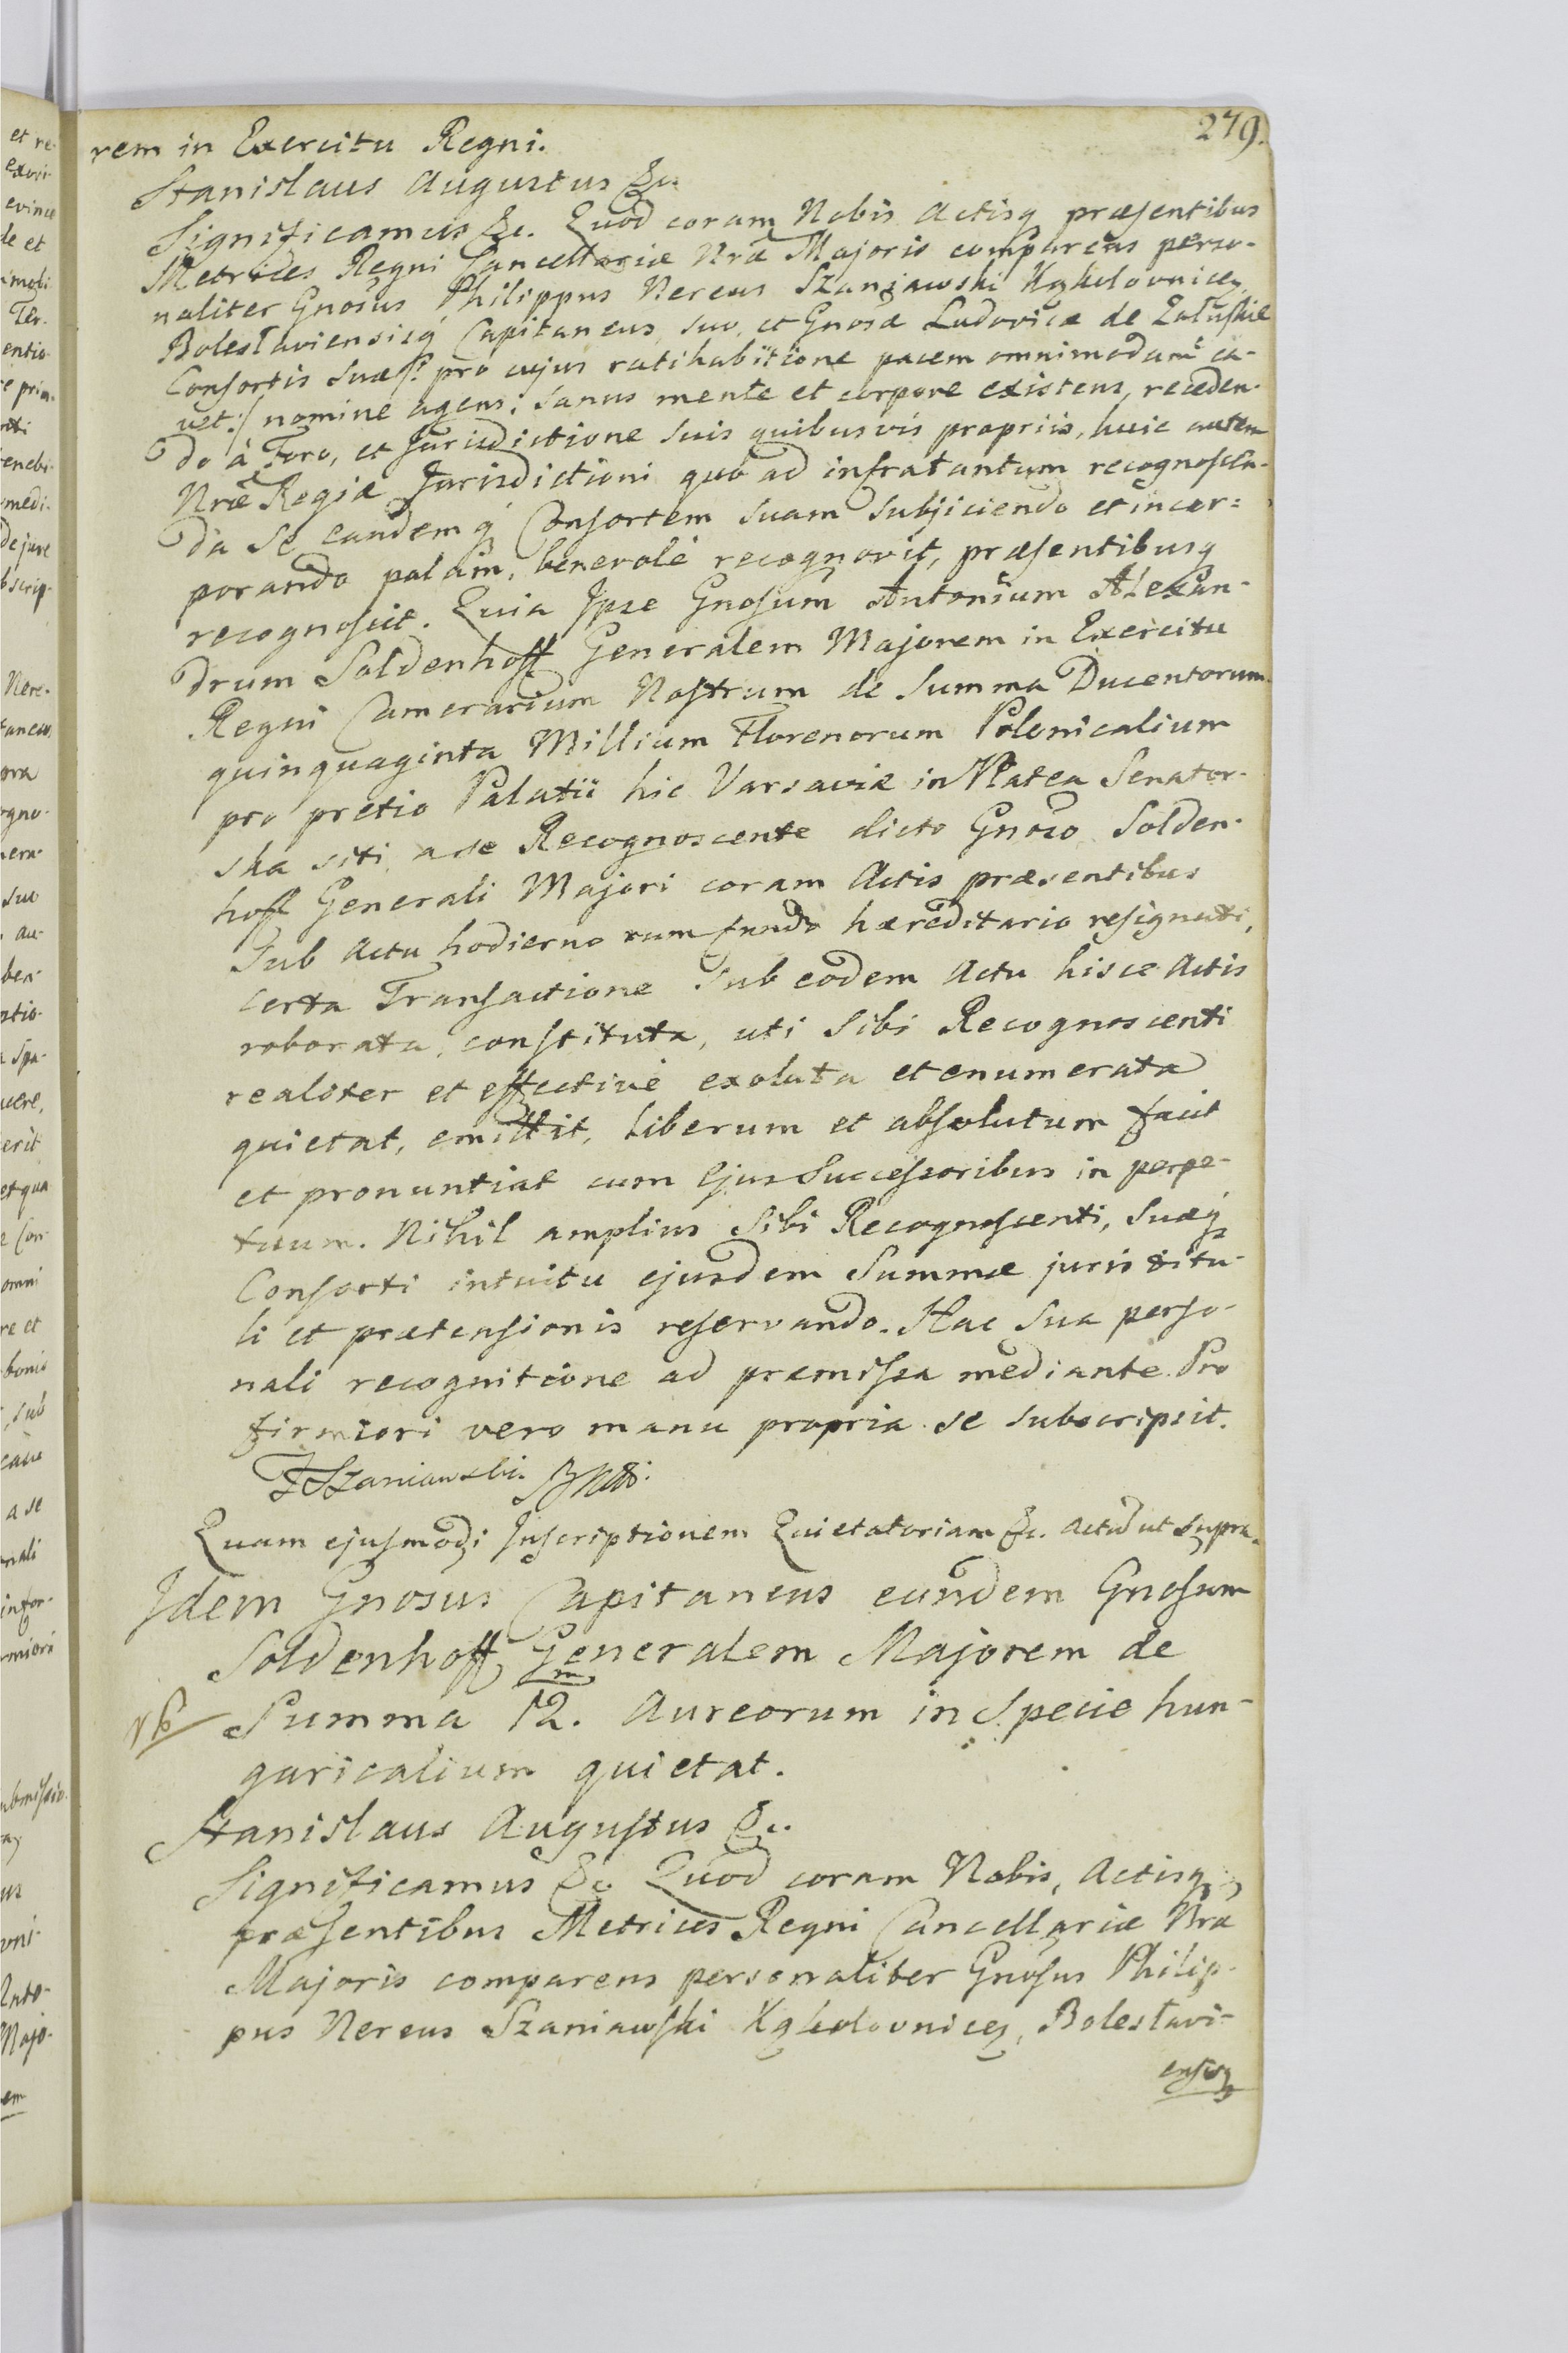 279.
rem in Exercitu Regni.
Stanislaus Augustus &c.
Significamus &c. Quod coram Nobis Actisq præsentibus
Metrices Regni Cancellariæ Nræ Majoris comparens perso-
naliter Gnosus Philippus Nereus Szaniawski Kąkolovnicen,
Boleslaviensisq Capitaneus, suo, et Gnosæ Ludovicæ de Załuskie
Consortis suæ /: pro cujus ratihabitione pacem omnimodam ca-
vet :/ nomine agens; sanus mente et corpore existens, receden-
do à Foro, et Jurisdictione suis quibusvis propriis, huic autem
Nræ Regiæ Jurisdictioni quo ad infra tantum recognoscen-
da se eandemq Consortem suam subjiciendo et incor=
porando palam, benevolè recognovit, præsentibusq
recognoscit. Quia Ipse Gnosum Antonium Alexan-
drum Soldenhoff Generalem Majorem in Exercitu
Regni Camerarium Nostrum de Summa Ducentorum
quinquaginta Millium Florenorum Polonicalium
pro pretio Palatii hic Varsaviæ in Platea Senator-
ska siti a se Recognoscente dicto Gnoso Solden-
hoff Generali Majori coram Actis præsentibus
Sub Actu hodierno cum fundo hæreditario resignati,
certa Transactione sub eodem Actu hisce Actis
roborata, constituta, uti sibi Recognoscenti
realiter et effectivè exoluta et enumerata
quietat, emittit, liberum et absolutum facit
et pronuntiat cum Ejus Successoribus in perpe-
tuum. Nihil amplius sibi Recognoscenti, suæq
Consorti intuitu ejusdem Summæ juris titu-
li et prætensionis reservando. Hac sua perso-
nali recognitione ad præmissa mediante. Pro
firmiori vero manu propria se subscripsit.
F Szaniawski
Quam ejusmodi Inscriptionem Quietatoriam &c. Actũ ut supra.
Idem Gnosus Capitaneus eundem Gnosum
Soldenhoff Generalem Majorem de
Summa 12. Aureorum in Specie hun-
garicalium quietat.
Stanislaus Augustus &c.
Significamus &c. Quod coram Nobis, Actisq
præsentibus Metrices Regni Cancellariæ Nræ
Majoris comparens personaliter Gnosus Philip-
pus Nereus Szaniawski Kąkolovnicen, Boleslavi-
ensisq